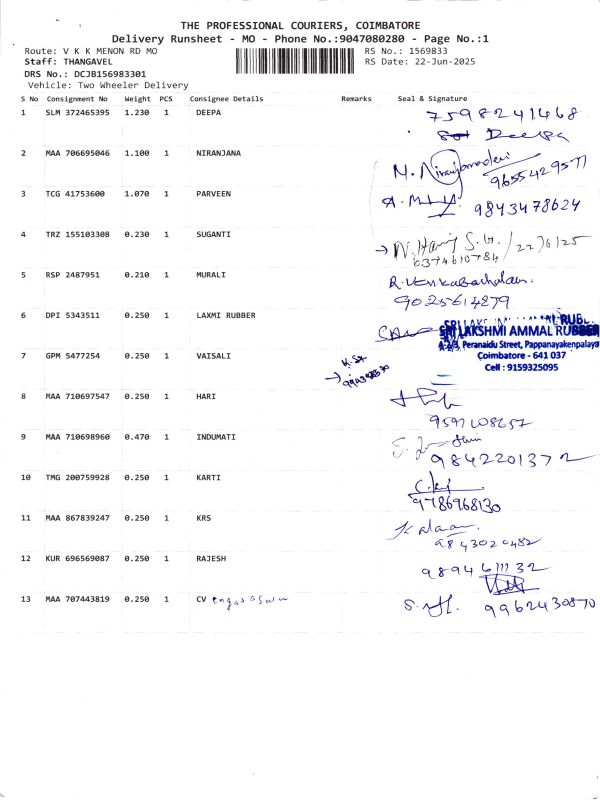 THE PROFESSIONAL COURIERS, COIMBATORE
Delivery Runsheet - MO - Phone No.:9047080280 - Page No.:1
Route: V K K MENON RD MO RS No.: 1569833
Staff: THANGAVEL RS Date: 22-Jun-2025
DRS No.: DCJB156983301
Vehicle: Two Wheeler Delivery
S No Consignment No Weight PCS Consignee Details Remarks Seal & Signature
1 SLM 372465395 1.230 1 DEEPA 7598241468
Deepa
2 MAA 706695046 1.100 1 NIRANJANA N. Niranjanadevi
9655429577
3 TCG 41753600 1.070 1 PARVEEN 9843478624
4 TRZ 155103308 0.230 1 SUGANTI 22/6/25
6374610784
5 RSP 2487951 0.210 1 MURALI R. Venkatachalam
9025614879
6 DPI 5343511 0.250 1 LAXMI RUBBER
SRI LAKSHMI AMMAL RUBBER
A-2/3, Peranaidu Street, Pappanayakenpalaya
Coimbatore - 641 037
Cell : 9159325095
7 GPM 5477254 0.250 1 VAISALI
8 MAA 710697547 0.250 1 HARI
9597608657
9 MAA 710698960 0.470 1 INDUMATI
9842201372
10 TMG 200759928 0.250 1 KARTI
9786968130
11 MAA 867839247 0.250 1 KRS
9843020482
12 KUR 696569087 0.250 1 RAJESH 9894611132
13 MAA 707443819 0.250 1 CV 9962430870